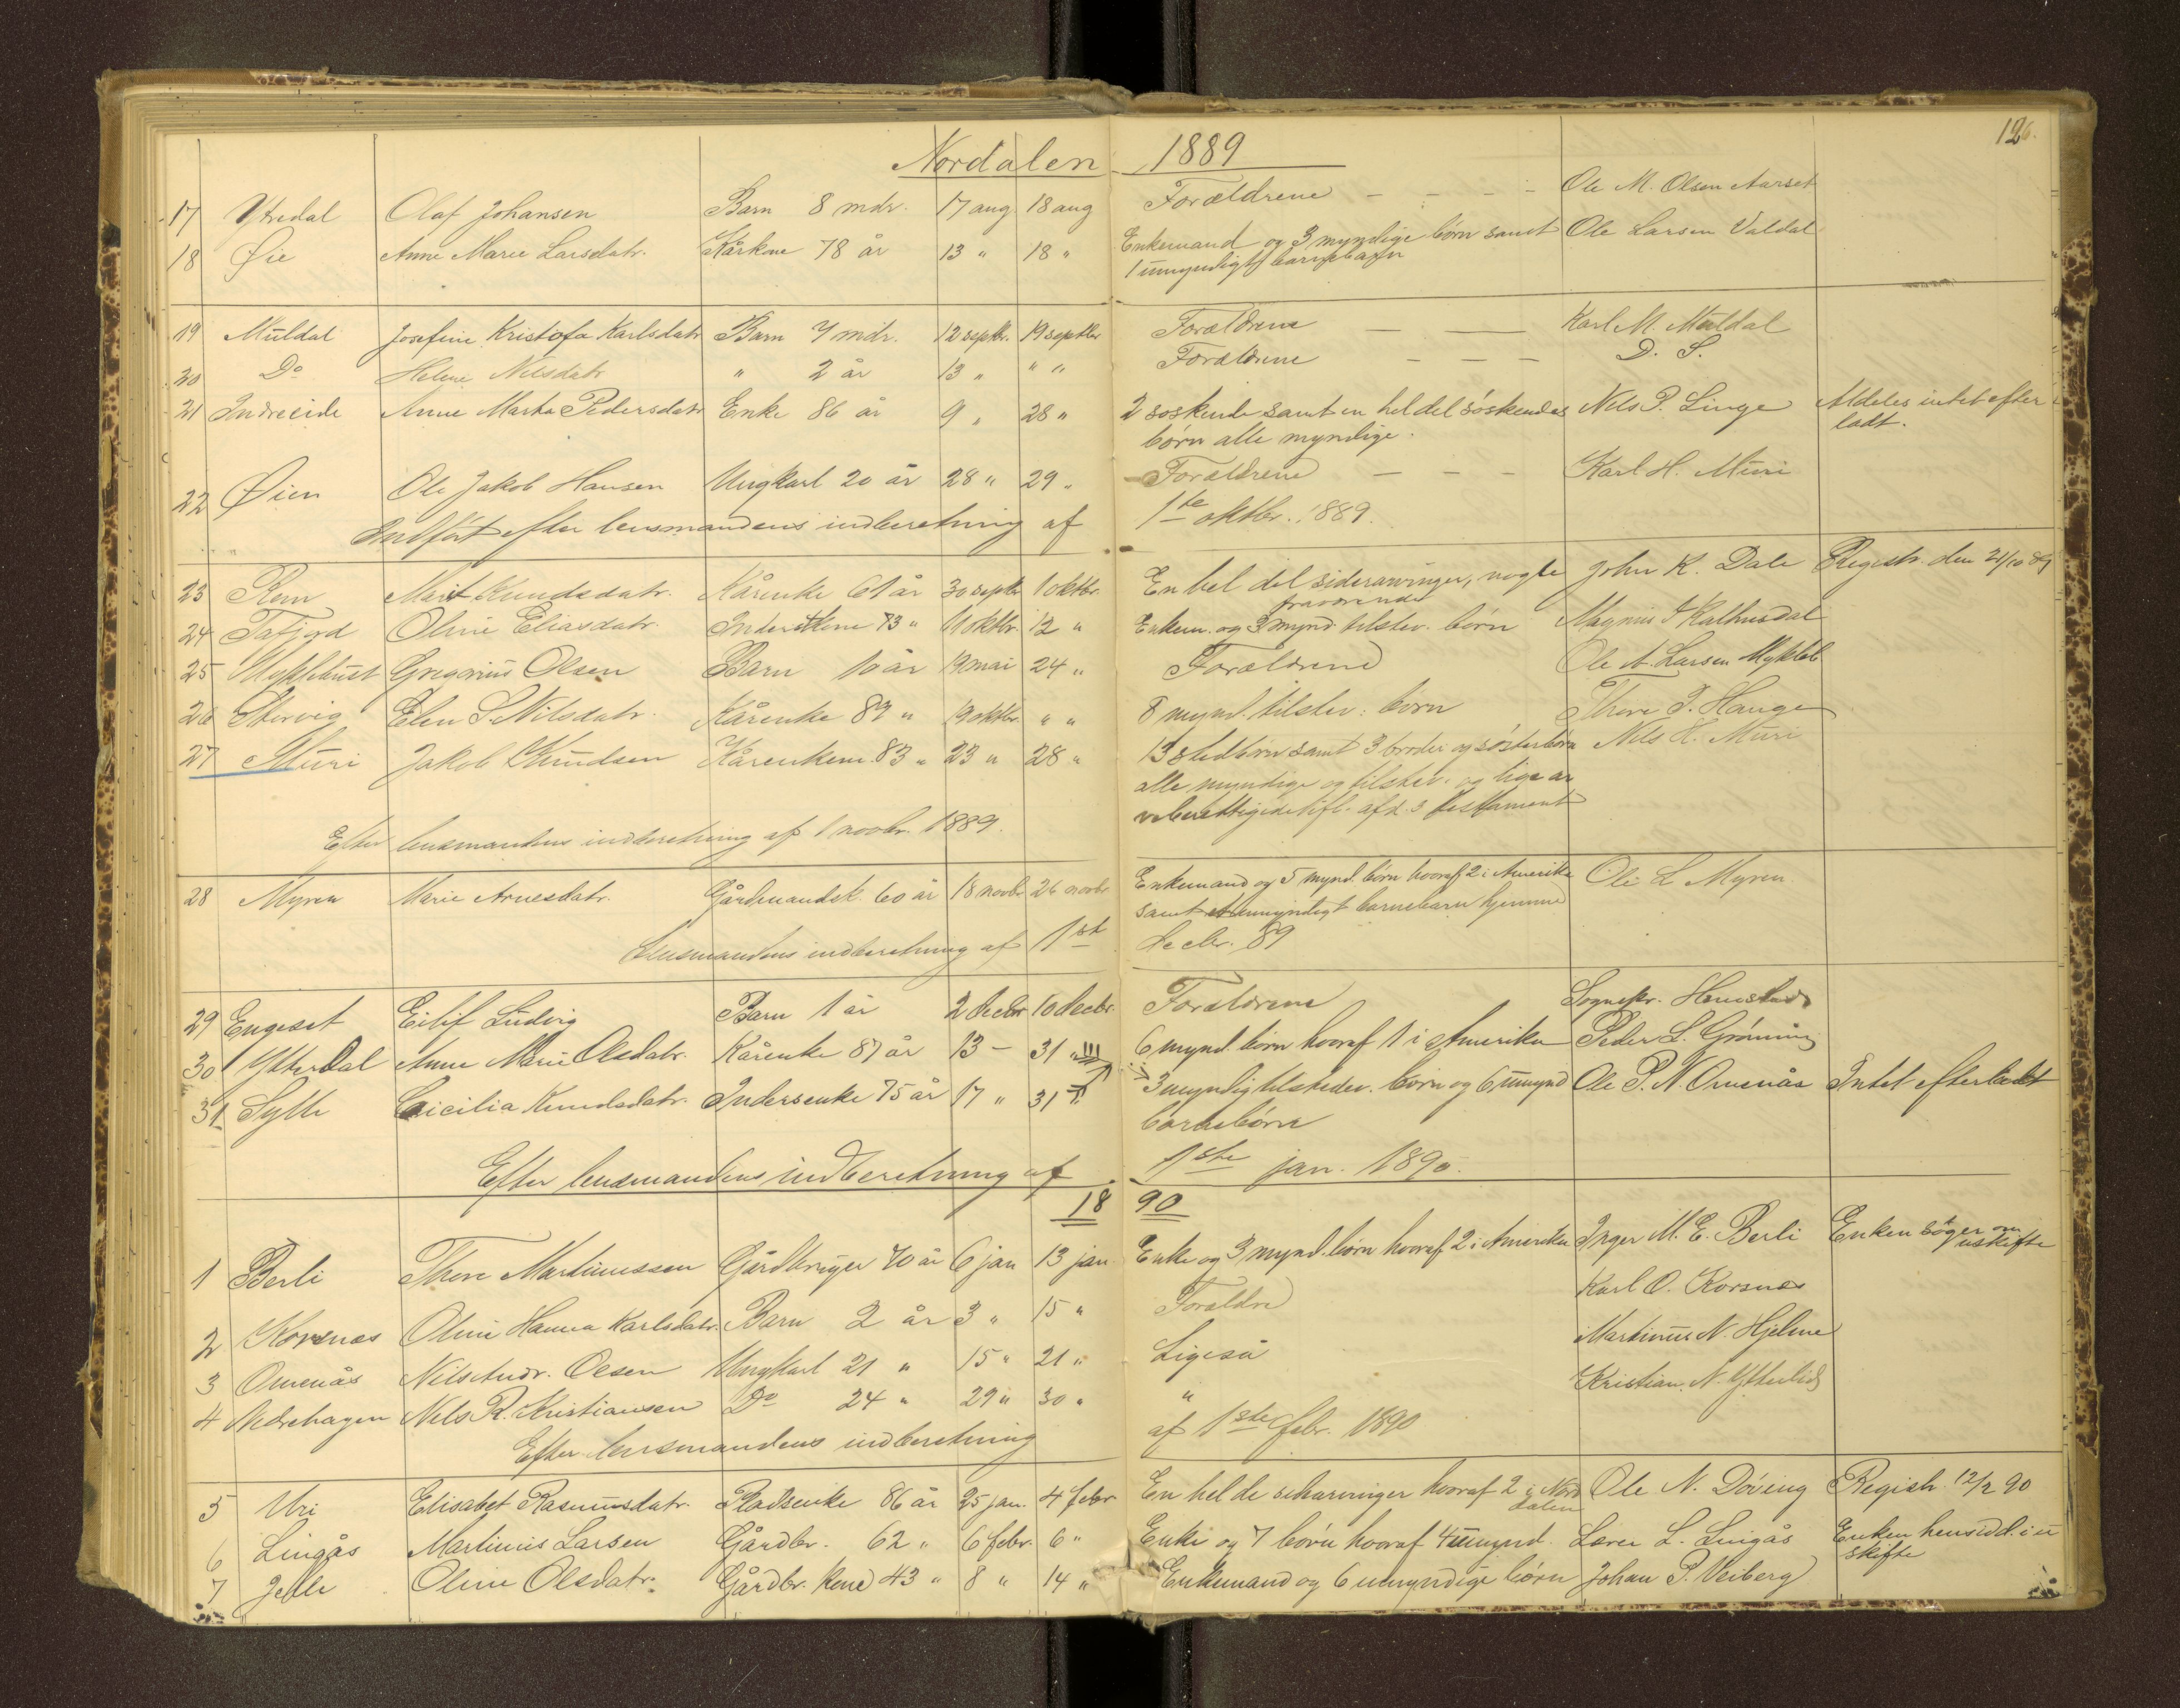 Nordalen 1889
126.
17 Ytredal Olaf Johansen Barn 8 mdr. 17 aug 18 aug Forældrene — — — — Ole M. Olsen Aarset
18 Øie Anne Marie Larsdatr. Kårkone 78 år 13 " 18 " Enkemand og 3 myndige børn samt Ole Larsen Valdal
1 umyndigt barnebarn
19 Muldal Josefine Kristofa Karlsdatr Barn 7 mdr. 12 septr. 19 septbr Forældrene — — Karl M. Muldal
20 Do Helene Nilsdatr " 2 år 13 " " " Forældrene — — — D. S.
21 Indreeide Anne Marta Pedersdatr Enke 86 år 9 " 28 " 2 søskende samt en hel del søskendes Nils P. Linge Aldeles intet efter
børn alle myndige. ladt.
22 Øien Ole Jakob Hansen Ungkarl 20 år 28 " 29 " Forældrene — — — Karl H. Muri
Indført efter lensmandens indberetning af 1ste oktbr. 1889.
23 Rem Marit Knudsdatr. Kårenke 61 år 30 septr 1 oktbr. En hel del sidearvinger, nogle John K. Dale Registr. den 21/10 89
fraværende
24 Tafjord Oline Eliasdatr. Inderstkone 73 " 11 oktbr. 12 " Enkem. og 3 mynd. tilstev. børn Magnus I Kalhusdal
25 Myklebust Gregorius Olsen Barn 10 år 19 mai 24 " Forældrene Ole A. Larsen Mykleb.
26 Storvig Elen S. Nilsdatr. Kårenke 89 " 19 oktbr " " 8 mynd. tilstev. børn Thore P. Hauge
27 Muri Jakob Knudsen Kårenkem. 83 " 23 " 28 " 13 stedbørn samt 3 broder og søsterbørn Nils H. Muri
alle myndige og tilstev. og lige ar
veberettigede tifl. afd.s testament
Efter lensmandens indberetning af 1 novbr. 1889.
28 Myren Marie Arnesdatr. Gårdmandsk. 60 år 18 novbr 26 novbr. Enkemand og 5 mynd. børn hvoraf 2 i Amerika Ole L Myren
samt et umyndigt barnebarn hjemme
Lensmandens indberetning af 1st decbr. 89
29 Engeset Eilif Ludvig Barn 1 år 2 decbr 10 decbr. Forældrene Sognepr. Hemstad
30 Ytterdal Anne Marie Olsdatr. Kårenke 87 år 13 — 31 " 6 mynd. børn hvoraf 1 i Amerika Peder L. Grønning
31 Sylte Cicilia Knudsdatr. Indersenke 75 år 17 " 31 " 3 myndig tilsteder. børn og 6 umynd Ole P. N. Omenås Intet efterladt
børnebørn
Efter lensmandens indberetning af 1ste jan. 1890.
1890
1 Berli Thore Martinussen Gårdbruger 70 år 6 jan 13 jan Enke og 3 mynd. børn hvoraf 2 i Amerika Inger M. E. Berli Enken søger om
uskifte
2 Korsnes Oline Hanna Karlsdatr. Barn 2 år 3 " 15 " Forældre Karl O. Korsnes
3 Omenås Nils Andr. Olsen Ungkarl 21 " 15 " 21 " Ligeså Martinus N. Hjelme
4 Nedrehagen Nils R. Kristiansen Do 24 " 29 " 30 " " Kristian N. Ytterlid
Efter lensmandens indberetning af 1ste febr. 1890
5 Uri Elisabet Rasmusdatr. Pladsenke 86 år 25 jan. 4 febr En hel de sidearvinger hvoraf 2 i Nord Ole N. Døving Registr. 12/2 90
dalen
6 Lingås Martinus Larsen Gårdbr. 62 " 6 febr. 6 " Enke og 7 børn hvoraf 4 umynd. Lærer L. Lingås Enken hensidd. i u
skifte
7 Jelle Oline Olsdatr. Gårdbr. kone 43 " 8 " 14 " Enkemand og 6 umyndige børn Johan P. Veiberg